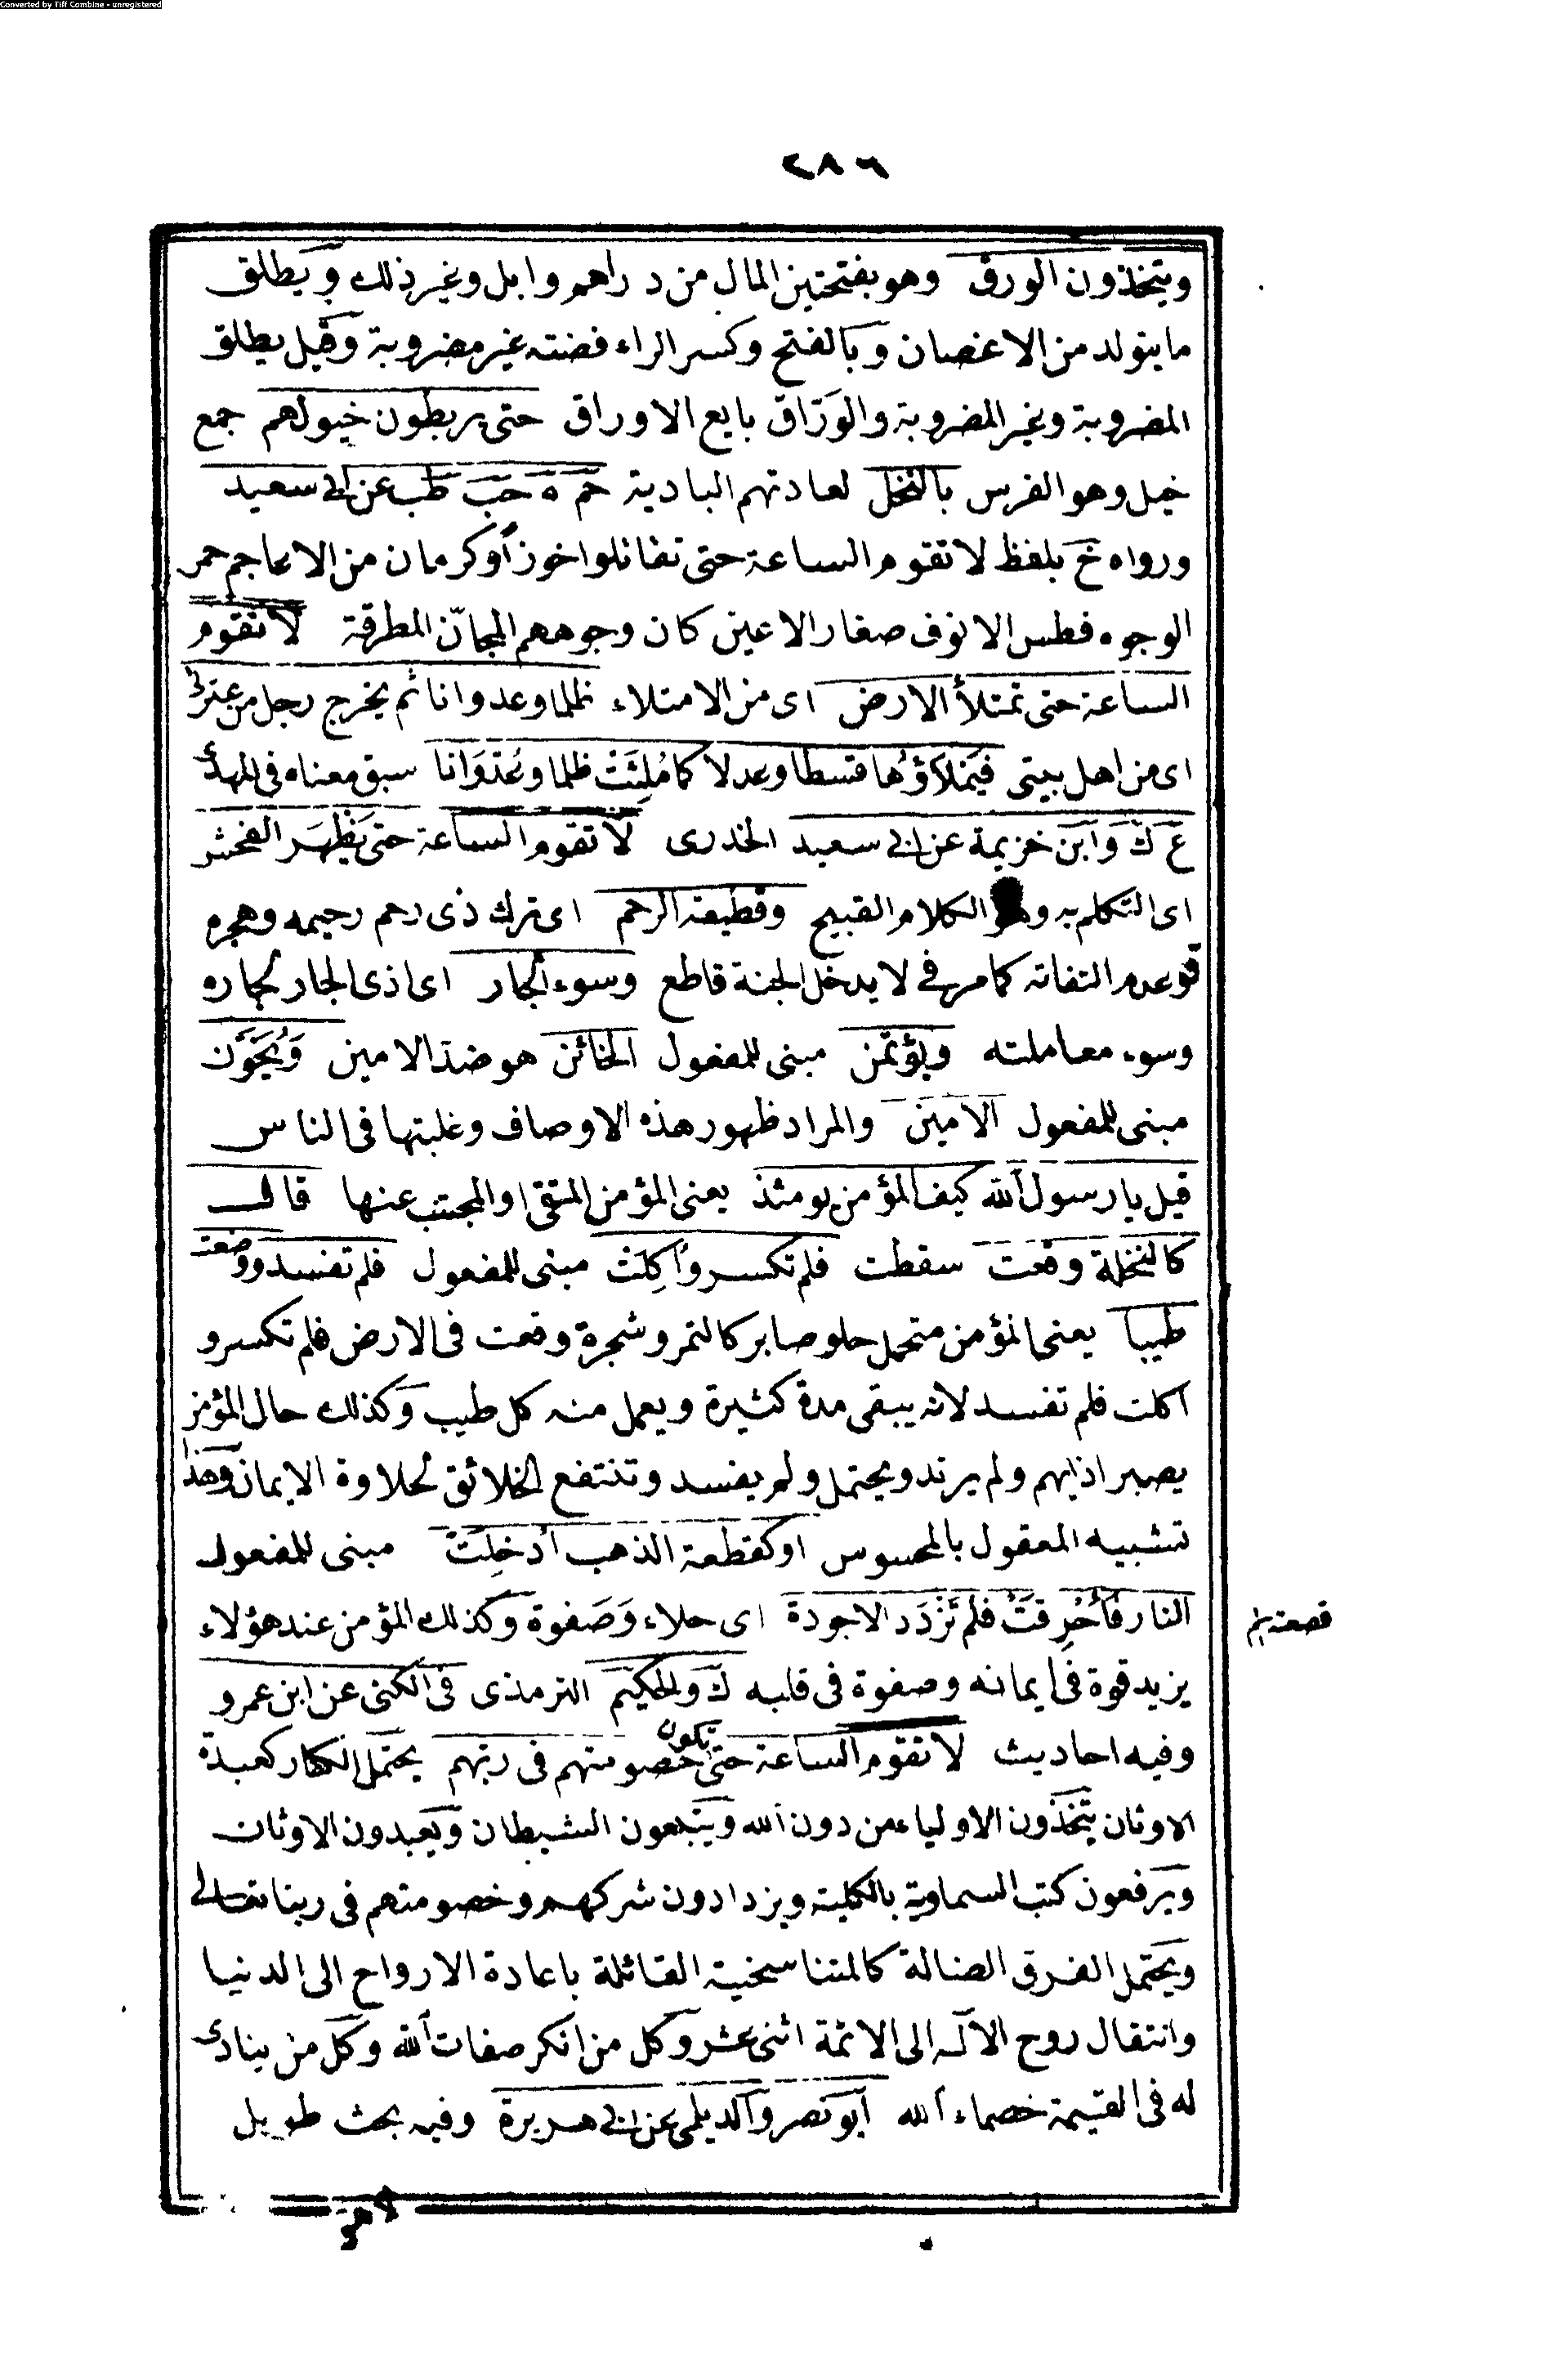 Converted by Tiff Combine - unregistered
٢٨٦
ويتخذون الورق وهو بفتحتين المال من دراهم وابل وغير ذلك ويطلق
ما يتولد من الاغصان وبالفتح وكسر الراء فضته غير مضروبة وقيل يطلق
المضروبة وغير المضروبة والورّاق بايع الاوراق حتى يربطون خيولهم جمع
خيل وهو الفرس بالنخل لعادتهم البادية حم ه حب طب عن ابى سعيد
ورواه خ بلفظ لا تقوم الساعة حتى تقاتلوا خوزاً وكرمان من الاعاجم حمر
الوجوه فطس الانوف صغار الاعين كان وجوههم المجانّ المطرقة لا تقوم
الساعة حتى تمتلأ الارض اى من الامتلاء ظلما وعدوانا ثم يخرج رجل من عترتى
اى من اهل بيتى فيملاؤها قسطا وعدلا كما مُلِئَتْ ظلما وعُدْوَانا سبق معناه فى المهدى
ع ك وابن خزيمة عن ابى سعيد الخدرى لا تقوم الساعة حتى يَظْهَرَ الفحش
اى التكلم به وهو الكلام القبيح وقطيعة الرحم اى ترك ذى رحم رحيمه وهجره
وعدم التفاته كما مر فى لا يدخل الجنة قاطع وسوء الجار اى اذى الجار لجاره
وسوء معاملته ويؤتمن مبنى للمفعول الخائن هو ضد الامين وَيُخَوَّن
مبنى للمفعول الامين والمراد ظهور هذه الاوصاف وغلبتها فى الناس
قيل يا رسول الله كيف المؤمن يومئذ يعنى المؤمن المتقى او المجتنب عنها قال
كالنخلة وقعت سقطت فلم تكسر وأُكِلَتْ مبنى للمفعول فلم تفسد ووضعت
طيبا يعنى المؤمن متحمل حلو صابر كالتمر وشجرة وقعت فى الارض فلم تكسر و
اكلت فلم تفسد لانه يبقى مدة كثيرة ويعمل منه كل طيب وكذلك حال المؤمن
يصبر اذايهم ولم يرتد ويحتمل ولم يفسد وتنتفع الخلائق لحلاوة الايمان وهذا
تشبيه المعقول بالمحسوس او كقطعة الذهب أُدْخِلَتْ مبنى للمفعول
النار فأُحْرِقَتْ فلم تَزْدَد الا جودة اى جلاء وَصَفوة وكذلك المؤمن عند هؤلاء
يزيد قوة فى ايمانه وصفوة فى قلبه ك والحكيم الترمذى فى الكنى عن ابن عمرو
وفيه احاديث لا تقوم الساعة حتى تكون خصومتهم فى ربهم يحتمل الكفار كعبدة
الاوثان يتخذون الاولياء من دون الله ويتبعون الشيطان ويعبدون الاوثان
ويرفعون كتب السماوية بالكلية ويزدادون شركهم وخصومتهم فى ربنا تعالى
ويحتمل الفرق الضالة كالمتناسخية القائلة باعادة الارواح الى الدنيا
وانتقال روح الاله الى الائمة اثنى عشر وكل من انكر صفات الله وكل من ينادى
له فى القيمة خصماء الله ابو نصر والديلمى عن ابى هريرة وفيه بحث طويل